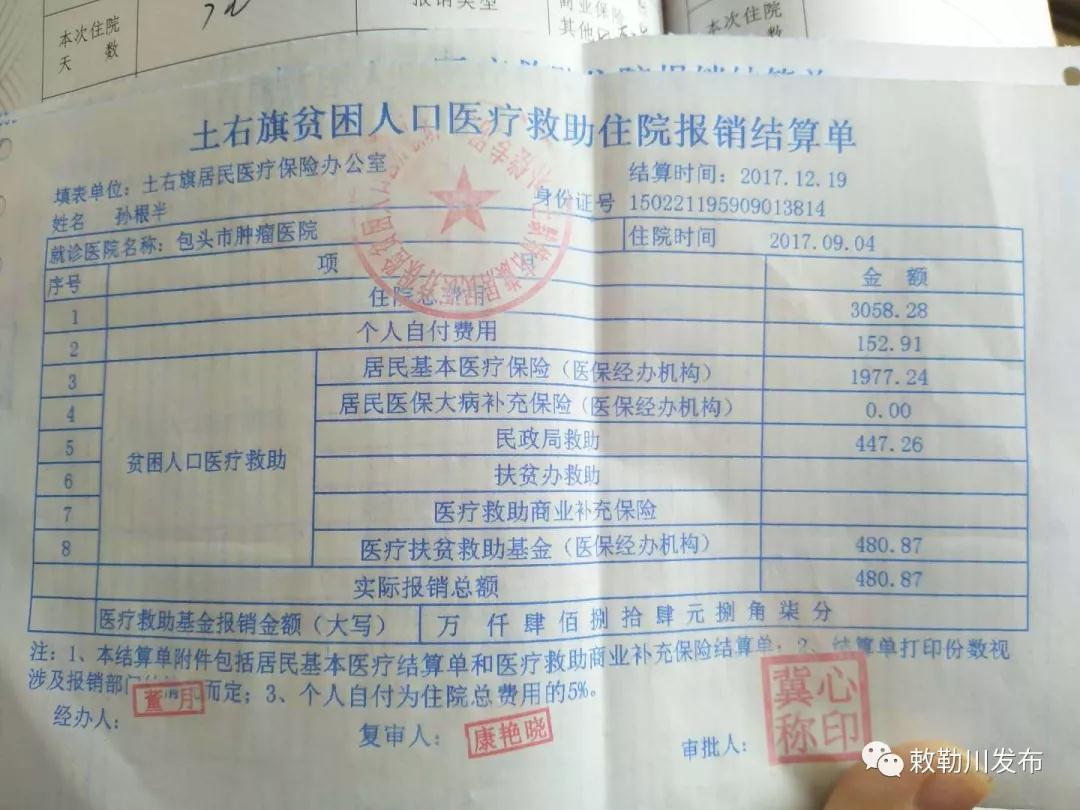 本次住院
天 数
报销类型
商业保险
其他
本次住院
天 数
土右旗贫困人口医疗救助住院报销结算单
填表单位：土右旗居民医疗保险办公室
结算时间：2017.12.19
姓名 孙根半
身份证号 150221195909013814
就诊医院名称：包头市肿瘤医院
住院时间 2017.09.04
序号 项 目 金 额
1 住院总费用 3058.28
2 个人自付费用 152.91
3 居民基本医疗保险（医保经办机构） 1977.24
4 居民医保大病补充保险（医保经办机构） 0.00
5 民政局救助 447.26
贫困人口医疗救助
6 扶贫办救助
7 医疗救助商业补充保险
8 医疗扶贫救助基金（医保经办机构） 480.87
实际报销总额 480.87
医疗救助基金报销金额（大写） 万 仟 肆 佰 捌 拾 肆 元 捌 角 柒 分
注：1、本结算单附件包括居民基本医疗结算单和医疗救助商业补充保险结算单；2、结算单打印份数视
涉及报销部门 而定；3、个人自付为住院总费用的5%。
经办人：
董 月
复审人：
康艳晓
审批人：
冀心
称印
敕勒川发布